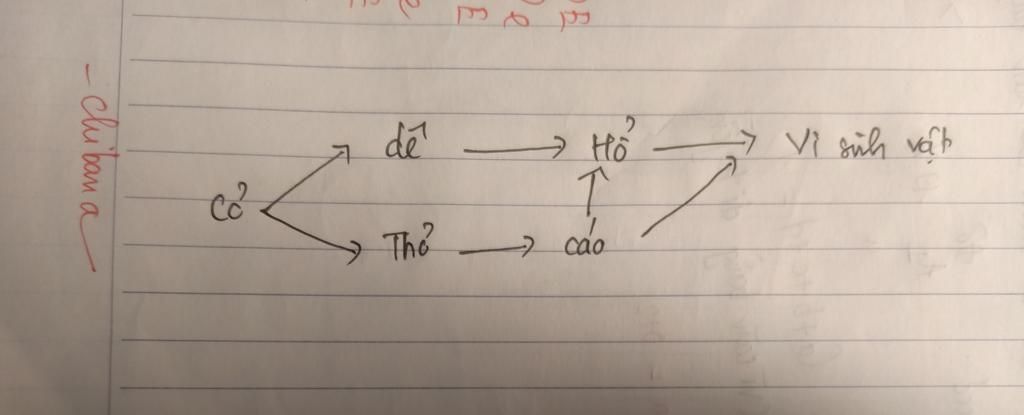 dê → Hổ → Vi sinh vật
Cỏ
Thỏ → cáo
- chibana